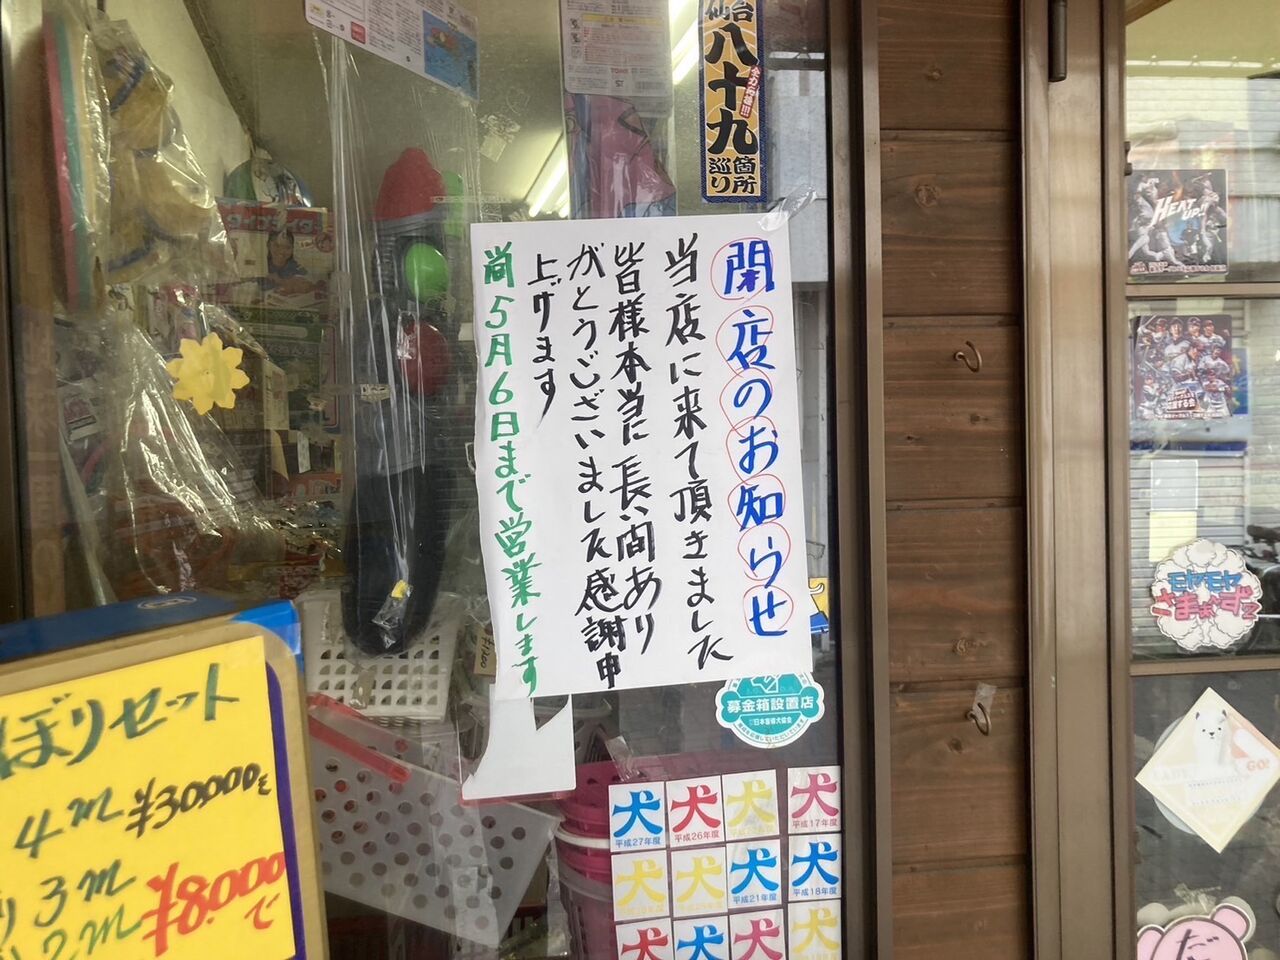 仙台
八十九
箇所
巡り
閉店のお知らせ
当店に来て頂きました
皆様本当に長い間あり
がとうございました感謝申
上げます
尚5月6日まで営業します
HEAT UP!!
モヤモヤ
さまぁ〜ず2
募金箱設置店
日本盲導犬協会
ぼりセット
4m ¥30,000を
り3m
2m ¥8,000で
犬 平成27年度
犬 平成26年度
犬
犬 平成17年度
犬
犬
犬 平成21年度
犬 平成18年度
犬
犬
犬
犬
GO!
だ